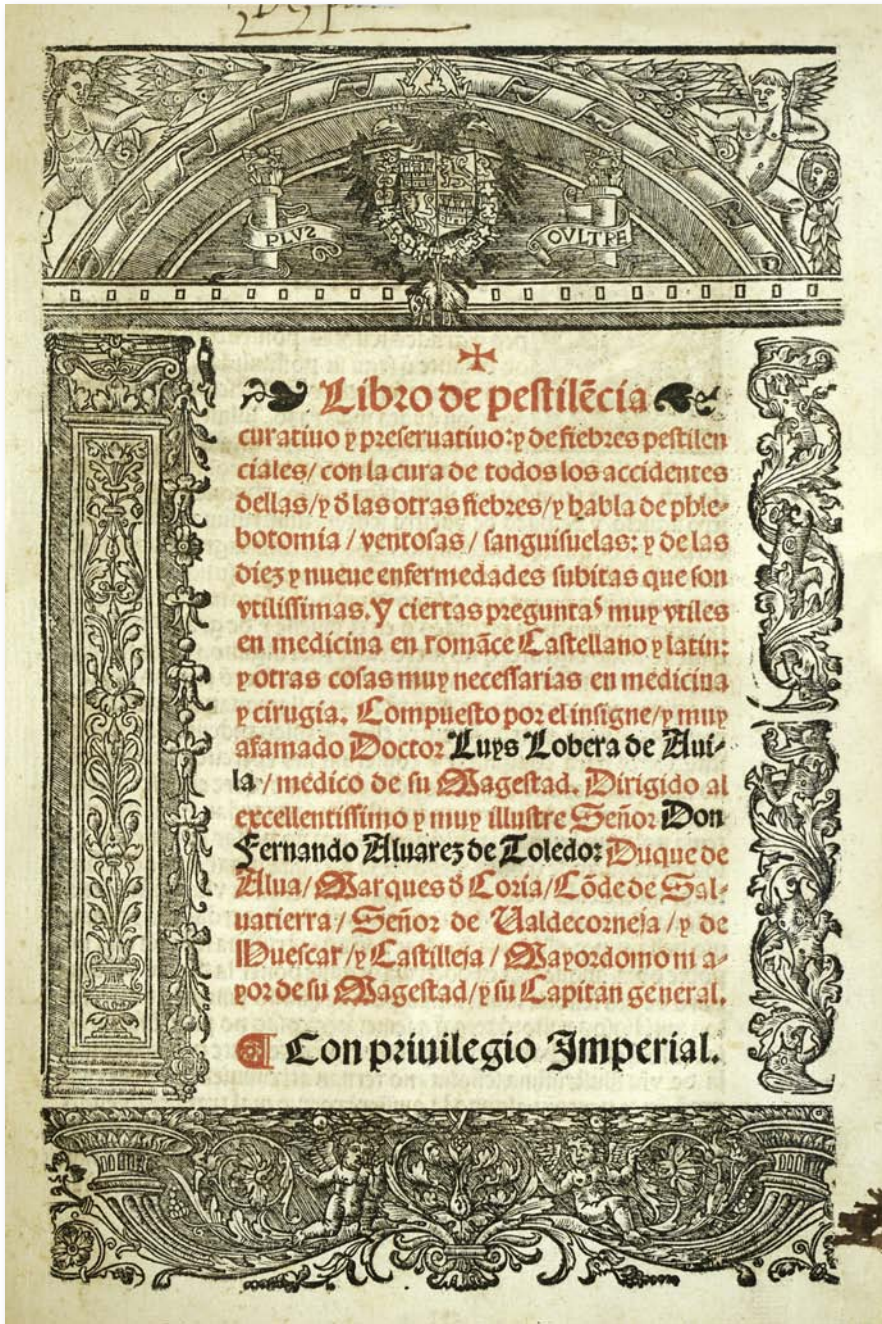 PLVS
OVLTRE
✠
Libro de pestilẽcia
curatiuo y preseruatiuo: y de fiebres pestilen
ciales/ con la cura de todos los accidentes
dellas/ y d̃ las otras fiebres/ y habla de phle-
botomia / ventosas / sanguisuelas: y de las
diez y nueue enfermedades subitas que son
vtilissimas. Y ciertas preguntas muy vtiles
en medicina en romãce Castellano y latin:
y otras cosas muy necessarias en medicina
y cirugia. Compuesto por el insigne/ y muy
afamado Doctor Luys Lobera de Aui-
la / medico de su Magestad. Dirigido al
excellentissimo y muy illustre Señor Don
Fernando Aluarez de Toledo: Duque de
Alua/ Marques d̃ Coria/ Cõde de Sal-
uatierra / Señor de Ualdecorneja / y de
Huescar/ y Castilleja / Mayordomo m a-
yor de su Magestad/ y su Capitan general.
¶ Con priuilegio Imperial.